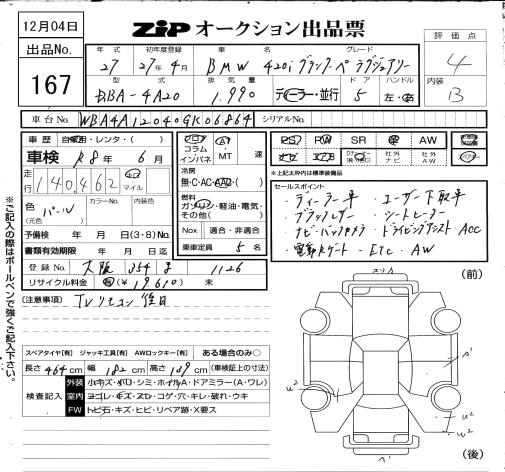 12月04日
ZIP オークション出品票
出品No.
167
評価点
4
内装
B
年式 初年度登録 車名 グレード
27 27年4月 BMW 420i グランクーペ ラグジュアリー
型式 排気量 ドア ハンドル
DBA-4A20 1.990 ディーラー・並行 5 左・右
車台No. WBA4A12040GK06864 シリアルNo.
車歴 自家用・レンタ・( )
車検 R8年 6月
走行 140,462 km マイル
色 (元色) パール カラーNo. 内装色
予備検 年 月 日(3・8)No.
書類有効期限 年 月 日
登録No. 大阪 354 す 1126
リサイクル料金 有(¥19610) 未
フロア コラム インパネ AT MT 速
冷房 無・C・AC・AAC・( )
燃料 ガソリン・軽油・電気・その他( )
Nox 適合・非適合
乗車定員 5名
PS PW SR AW
ナビ エアB 社外ナビ 社外AW
※上記太枠内は標準装備品
セールスポイント
・ディーラー車 ・ユーザー下取車
・ブラックレザー ・シートヒーター
・ナビ・バックカメラ ・ドライビングアシスト ACC
・電動Rゲート ・ETC ・AW
(注意事項) TVリモコン後日
※ご記入の際はボールペンで強くご記入下さい。
スペアタイヤ[有] ジャッキ工具[有] AWロックキー[有] ある場合のみ○
長さ 464 cm 幅 182 cm 高さ 139 cm (車検証上の寸法)
検査記入
外装 小キズ・小凹・シミ・ホイルA・ドアミラー(A・ワレ)
室内 ヨゴレ・キズ・スレ・コゲ・穴・キレ・破れ・ウキ
FW トビ石・キズ・ヒビ・リペア跡・X要ス
(前)
スリA
A'
U2
W2
U2
A'
(後)